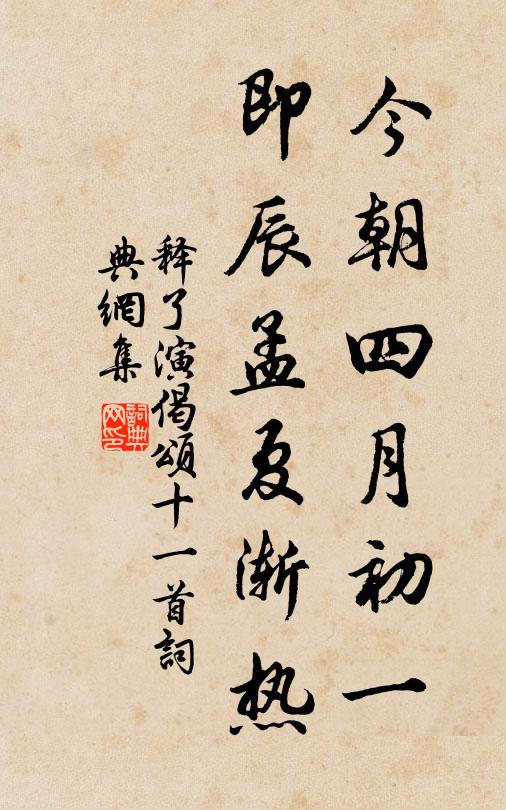 今朝四月初一
即辰孟夏渐热
释了演偈颂十一首詞
典網集
詞典网印